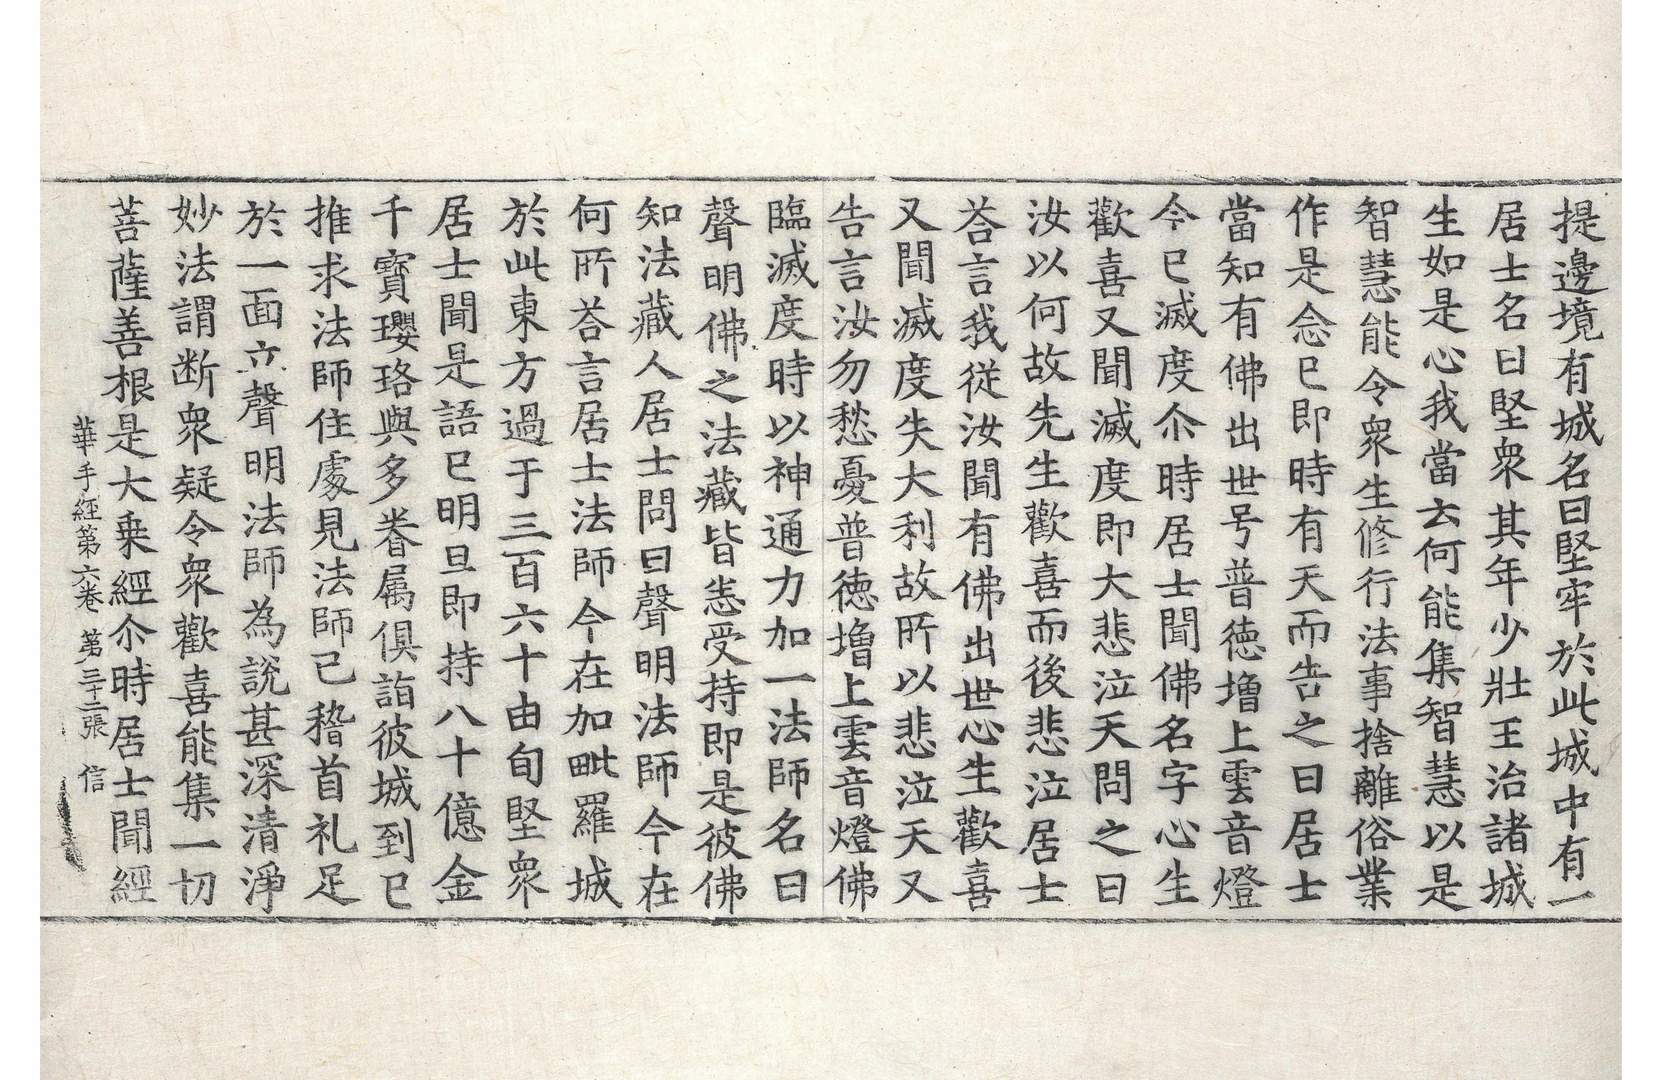 提邊境有城名曰堅牢於此城中有一
居士名曰堅衆其年少壯王治諸城
生如是心我當云何能集智慧以是
智慧能令衆生修行法事捨離俗業
作是念已即時有天而告之曰居士
當知有佛出世号普徳増上雲音燈
今已滅度尒時居士聞佛名字心生
歡喜又聞滅度即大悲泣天問之曰
汝以何故先生歡喜而後悲泣居士
荅言我從汝聞有佛出世心生歡喜
又聞滅度失大利故所以悲泣天又
告言汝勿愁憂普徳増上雲音燈佛
臨滅度時以神通力加一法師名曰
聲明佛之法藏皆悉受持即是彼佛
知法藏人居士問曰聲明法師今在
何所荅言居士法師今在加毗羅城
於此東方過于三百六十由旬堅衆
居士聞是語已明旦即持八十億金
千寶瓔珞與多眷属俱詣彼城到已
推求法師住處見法師已稽首礼足
於一面立聲明法師為說甚深清淨
妙法謂断衆疑令衆歡喜能集一切
菩薩善根是大乗經尒時居士聞經
華手經第六卷 第三十二張 信